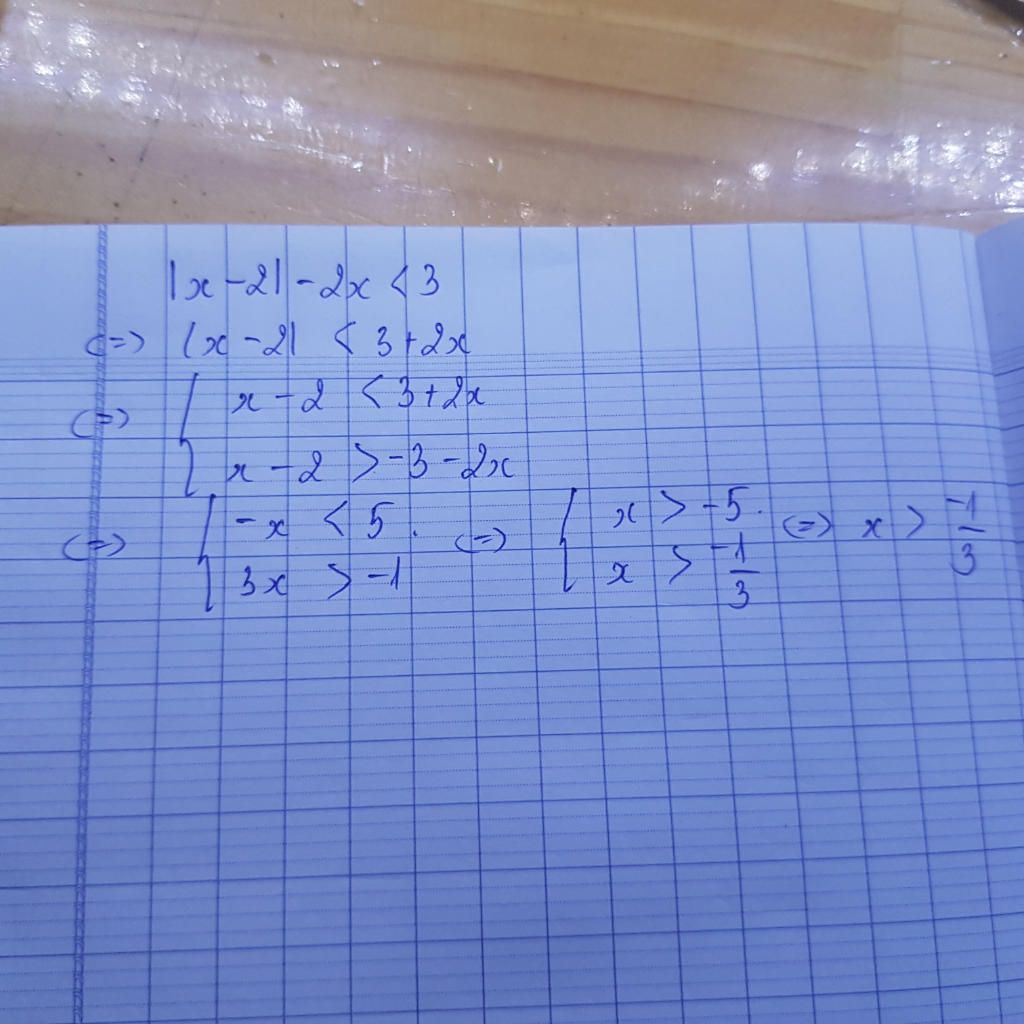 |x - 2| - 2x < 3
(=) |x - 2| < 3 + 2x
(=) { x - 2 < 3 + 2x
x - 2 > -3 - 2x
(=) { -x < 5. (=) { x > -5. (=) x > -1/3
3x > -1 x > -1/3